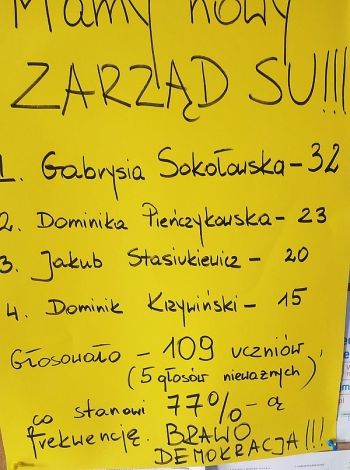 Mamy nowy
ZARZĄD SU!!!
1. Gabrysia Sokołowska - 32
2. Dominika Pieńczykowska - 23
3. Jakub Stasiukiewicz - 20
4. Dominik Krzywiński - 15
Głosowało - 109 uczniów
(5 głosów nieważnych)
co stanowi 77% - ą
frekwencję. BRAWO
DEMOKRACJA!!!